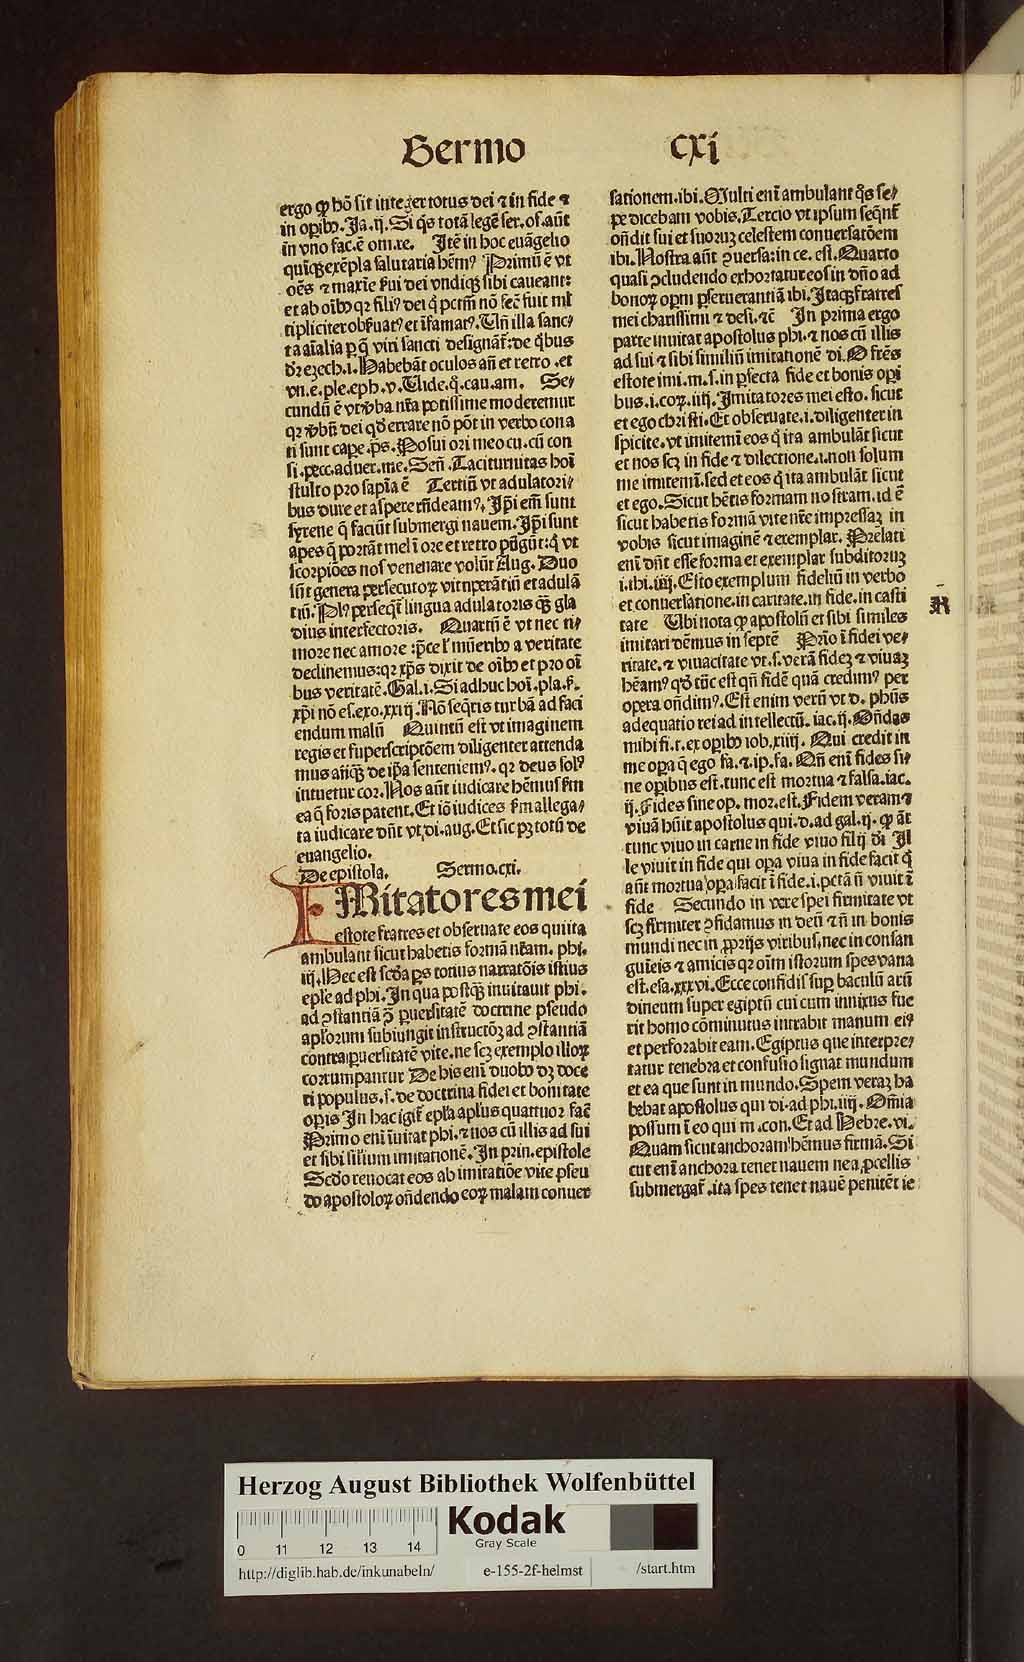 Sermo cxi
ergo ꝙ hō sit integer totus dei ⁊ in fide ⁊
in oꝑibꝰ. Ja. ij. Si q̇s totā legē ser. of. aūt
in vno fac. ē om. re. Itē in hoc euāgelio
quīqꝫ exēpla salutaria hēmꝰ Primū ē vt
oēs ⁊ maxīe ẜui dei vndiqꝫ sibi caueant:
et ab oībꝰ qꝛ filiꝰ dei q̇ pctm̄ nō fec̄ fuit ml̓
tipliciter obẜuatꝰ et īfamatꝰ. Un̄ illa sanc⸗
ta aīalia ꝑ q̄ viri sancti designāt̄: de q̇bus
dꝛ ezech. i. Habebāt oculos añ et retro. et
vn. e. ple. eph. v. Uide. q̄. cau. am. Se⸗
cundū ē vt v̓ba nr̄a potissime moderemur
qꝛ v̓bū dei qd̓ errare nō pōt in verbo cona
ti sunt caꝑe. p̄s. Posui ori meo cu. cū con
si. pecc. aduer. me. Sen̄. Taciturnitas hoī
stulto pro sapīa ē Tertiū vt adulatori⸗
bus dure et aspere rn̄deamꝰ. Ip̄i em̄ sunt
syrene q̄ faciūt submergi nauem. Ip̄i sunt
apes q̄ portāt mel ī ore et retro pūgūt: q̇ vt
scorpiōes nos venenare volūt Aug. Duo
sūt genera persecutoꝝ vitupeāntiū et adulā
tiū. Plꝰ perseqt̄ lingua adulatoris qꝫ gla
dius interfectoris. Quartū ē vt nec ti⸗
more nec amore: p̄ce l̓ mūeribꝰ a veritate
declinemus: qꝛ xp̄s dixit de oībꝰ et pro oī
bus veritatē. Gal. i. Si adhuc hoī. pla. ẜ.
xp̄i nō es. exo. xxiij. Nō seq̄ris turbā ad faci
endum malū Quintū est vt imaginem
regis et superscriptōem diligenter attenda
mus añqꝫ de ip̄a senteniemꝰ. qꝛ deus solꝰ
intuetur cor. Nos aūt iudicare hēmus ẜm
ea q̄ foris patent. Et iō iudices ẜm allega⸗
ta iudicare dn̄t vt. di. aug. Et sic pꝫ totū de
euangelio.
De epistola. Sermo. cxi.
IMitatores mei
estote fratres et obseruate eos qui ita
ambulant sicut habetis formā nr̄am. phi.
iij. Hec est scd̓a ꝑs totius narratōis istius
epl̓e ad phi. In qua postqꝫ inuitauit phi.
ad ꝯstantiā ꝯ̄ ꝑuersitatē doctrine pseudo
apl̓orum subiungit instructōꝫ ad ꝯstantiā
contra ꝑuersitatē vite. ne scꝫ exemplo illoꝝ
corrumpantur De his enī duobꝰ dꝫ doce
ri populus. s. de doctrina fidei et bonitate
oꝑis In hac igit̄ epl̓a apl̓us quattuor fac̄
Primo enī īuitat phi. ⁊ nos cū illis ad sui
et sibi sil̓ium imitationē. In prin. epistole
Scd̓o reuocat eos ab imitatiōe vite pseu
do apostoloꝝ on̄dendo eoꝝ malam conuer
sationem. ibi. Multi enī ambulant q̄s se⸗
pe dicebam vobis. Tercio vt ipsum seq̄nt̄
on̄dit sui et suoruꝫ celestem conuersatōem
ibi. Nostra aūt ꝯuersa: in ce. est. Quarto
quasi ꝯcludendo exhortatur eos in dn̄o ad
bonoꝝ opm̄ ꝑseuerantiā ibi. Itaqꝫ fratres
mei charissimi ⁊ desi. ⁊c̄ In prima ergo
parte inuitat apostolus phi. ⁊ nos cū illis
ad sui ⁊ sibi similiū imitationē di. O fr̄es
estote imi. m. s. in ꝑfecta fide et bonis oꝑi
bus. i. coꝝ. iiij. Imitatores mei esto. sicut
et ego christi. Et obseruate. i. diligenter in
spicite. vt imitemī eos q̇ ita ambulāt sicut
et nos scꝫ in fide ⁊ dilectione. i. non solum
me imitemī. sed et eos q̇ ita ambulāt sicut
et ego. Sicut hētis formam nostram. id ē
sicut habetis formā vite nr̄e impressaꝫ in
vobis sicut imaginē ⁊ exemplar. Prēlati
enī dn̄t esse forma et exemplar subditoruꝫ
i. thi. iiij. Esto exemplum fideliū in verbo
et conuersatione. in caritate. in fide. in casti
tate Ubi nota ꝙ apostolū et sibi similes
imitari dēmus in septē Prīo ī fidei ve⸗
ritate. ⁊ viuacitate vt. s. verā fideꝫ ⁊ viuaꝫ
hēamꝰ qd̓ tūc est qn̄ fidē quā credimꝰ per
opera on̄dimꝰ. Est enim verū vt d. ph̄us
adequatio rei ad intellectū. iac. ij. On̄das
mihi fi. t. ex oꝑibꝰ iob. xiiij. Qui credit in
me oꝑa q̄ ego fa. ⁊ ip. fa. Qn̄ enī fides si⸗
ne oꝑibus est. tunc est mortua ⁊ falsa. iac.
ij. Fides sine op. mor. est. Fidem veram ⁊
viuā hūit apostolus qui. d. ad gal. ij. ꝙ āt
tunc viuo in carne in fide viuo filij d̓i Il
le viuit in fide qui oꝑa viua in fide facit q̇
aūt mortua oꝑa facit ī fide. i. pctā n̄ viuit ī
fide Secundo in vere spei firmitate vt
scꝫ firmiter ꝯfidamus in deū ⁊ n̄ in bonis
mundi nec in ꝓprijs viribus, nec in consan
guīeis ⁊ amicis qꝛ oīm istorum spes vana
est. esa. xxxvi. Ecce confidis suꝑ baculū arū
dineum super egiptū cui cum innixus fue
rit homo cōminutus intrabit manum eiꝰ
et perforabit eam. Egiptus que interpre⸗
tatur tenebra et confusio signat mundum
et ea que sunt in mundo. Spem veraꝫ ha
bebat apostolus qui di. ad phi. iiij. Om̄ia
possum ī eo qui m. con. Et ad Hebre. vi.
Quam sicut anchoram hēmus firmā. Si
cut enī anchora tenet nauem ne a ꝓcellis
submergat̄. ita spes tenet nauē penitēt̄ ie
Herzog August Bibliothek Wolfenbüttel
0 11 12 13 14
Kodak
Gray Scale
http://diglib.hab.de/inkunabeln/ e-155-2f-helmst /start.htm